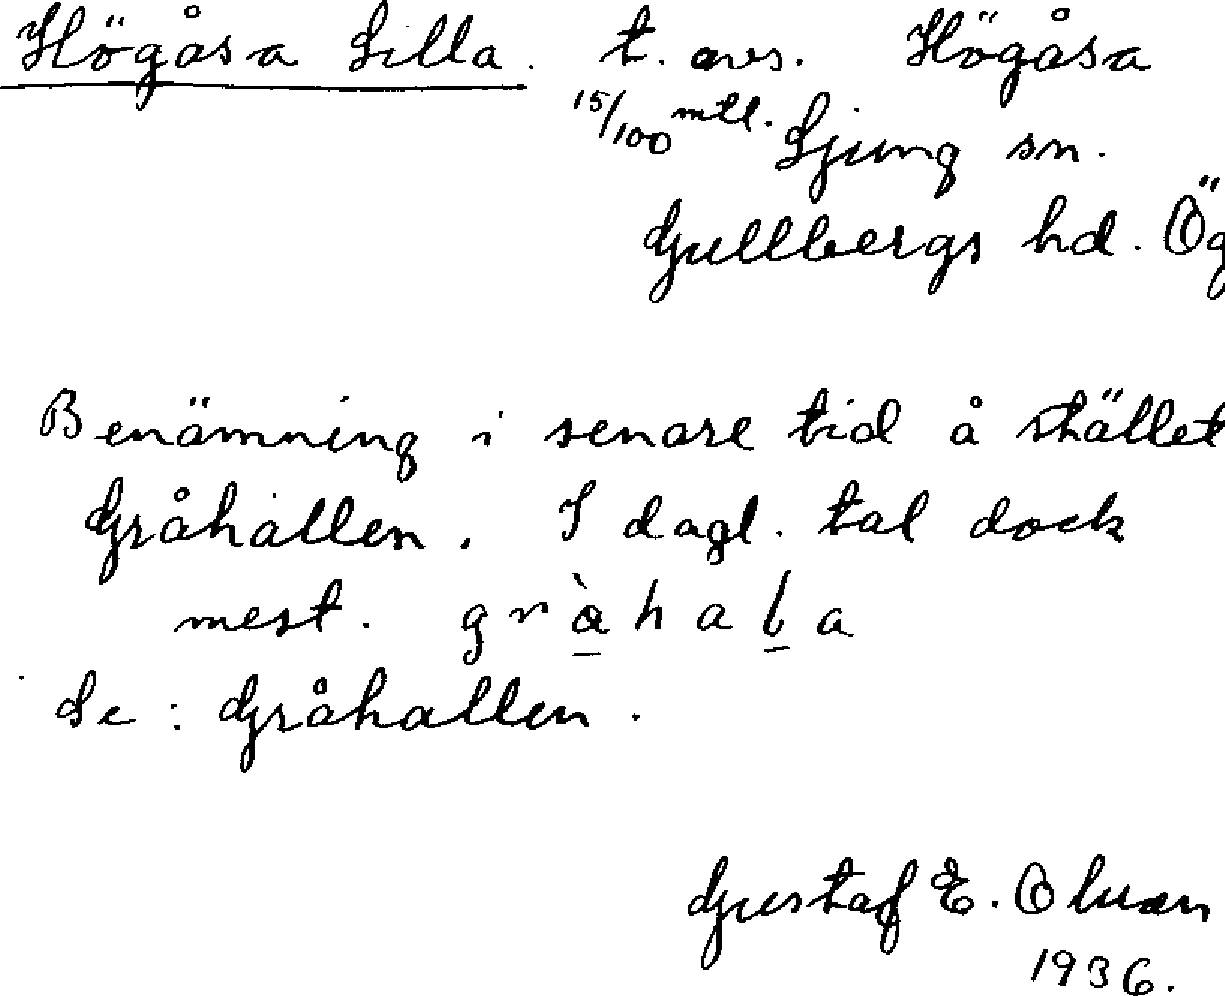 Högåsa Lilla. t. avs. Högåsa
15/100 mtl. Ljung sn.
Gullbergs hd. Ög
Benämning i senare tid å stället
Gråhallen. I dagl. tal dock
mest. gràhaḻa
Se: Gråhallen.
Gustaf E.
1936.